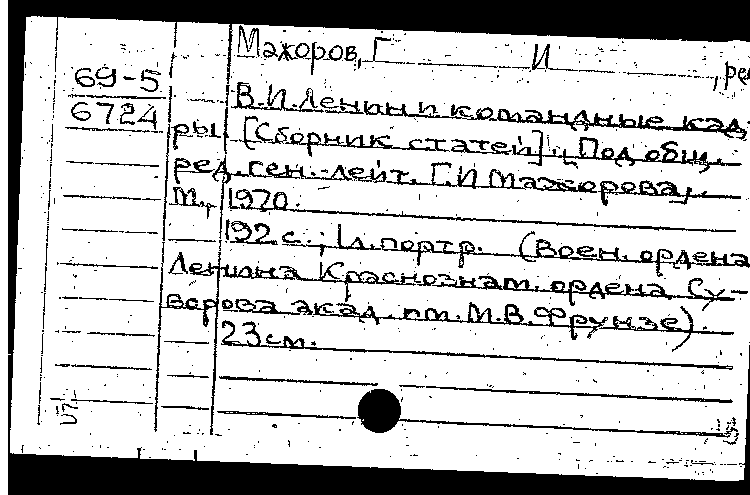 Мажоров, Г И , ре
69-5
6724
В.И. Ленин и командные кад-
ры. [Сборник статей]. [Под общ.
ред. ген.-лейт. Г.И Мажорова].
М., 1970.
192 с.; 1 л. портр. (Воен. ордена
Ленина Краснознам. ордена Су-
ворова акад. им. М.В. Фрунзе).
23 см.